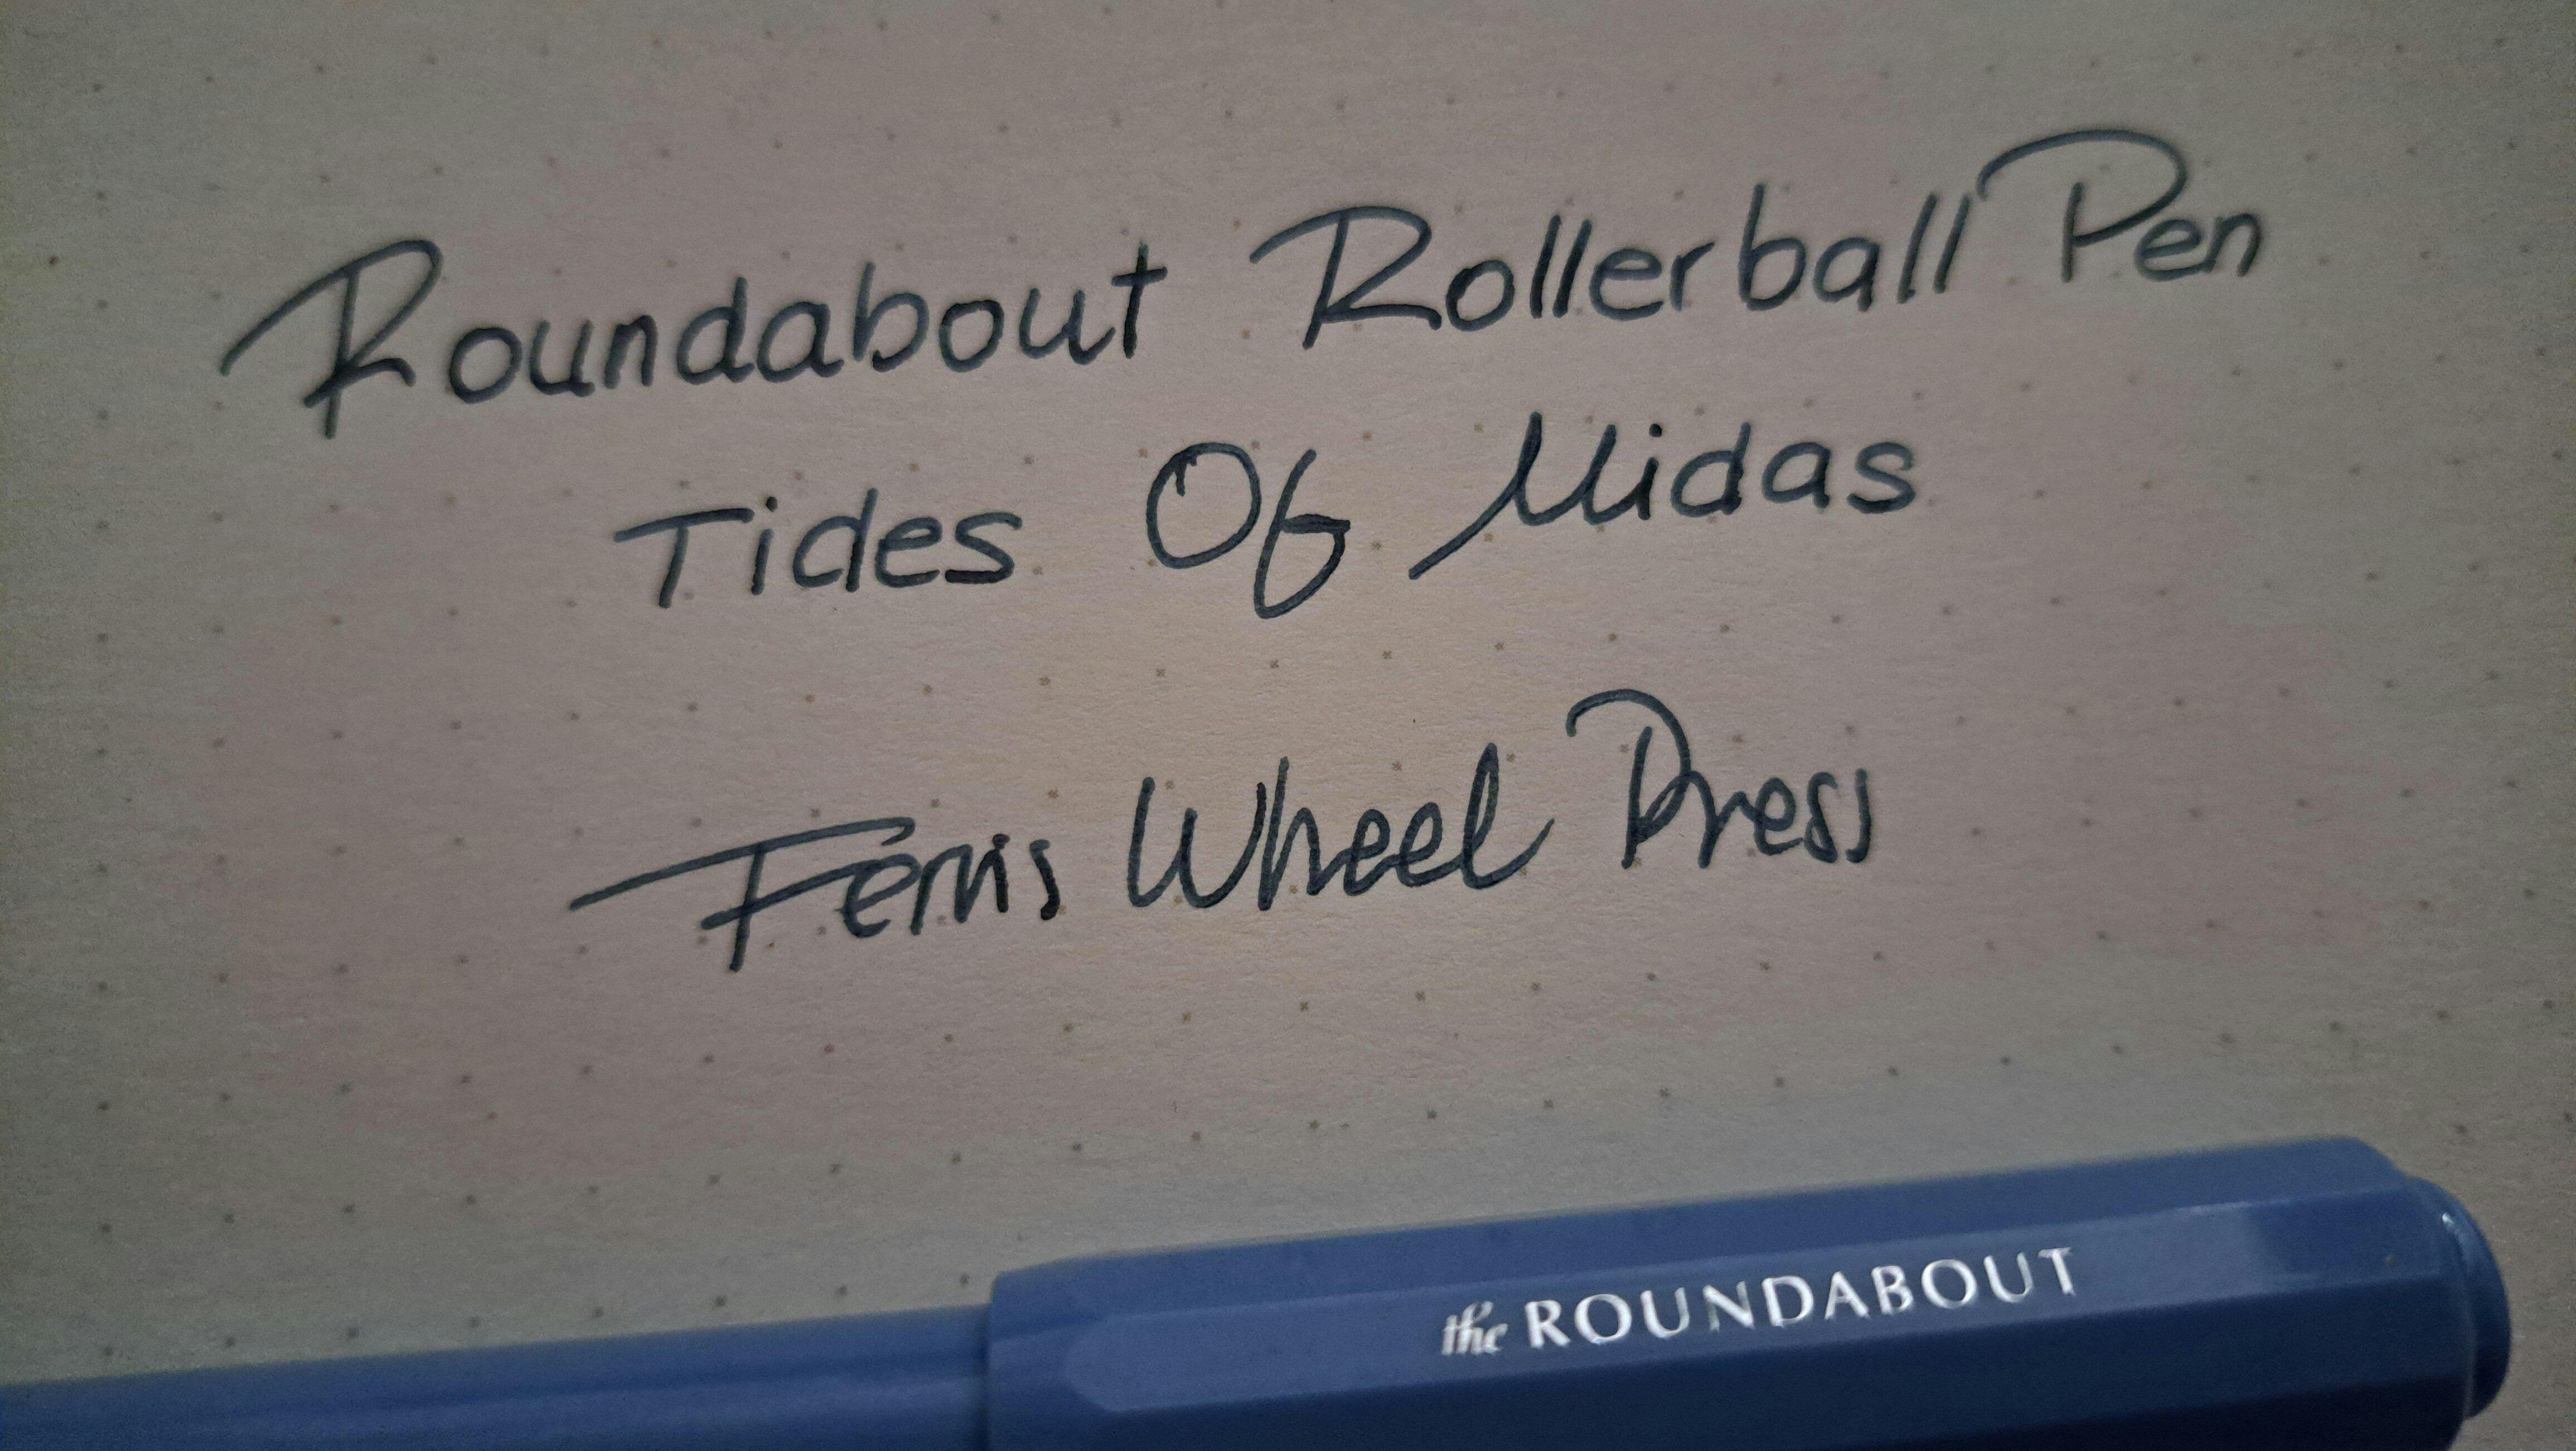 Roundabout Rollerball Pen
Tides Of Midas
Ferris Wheel Press
the ROUNDABOUT